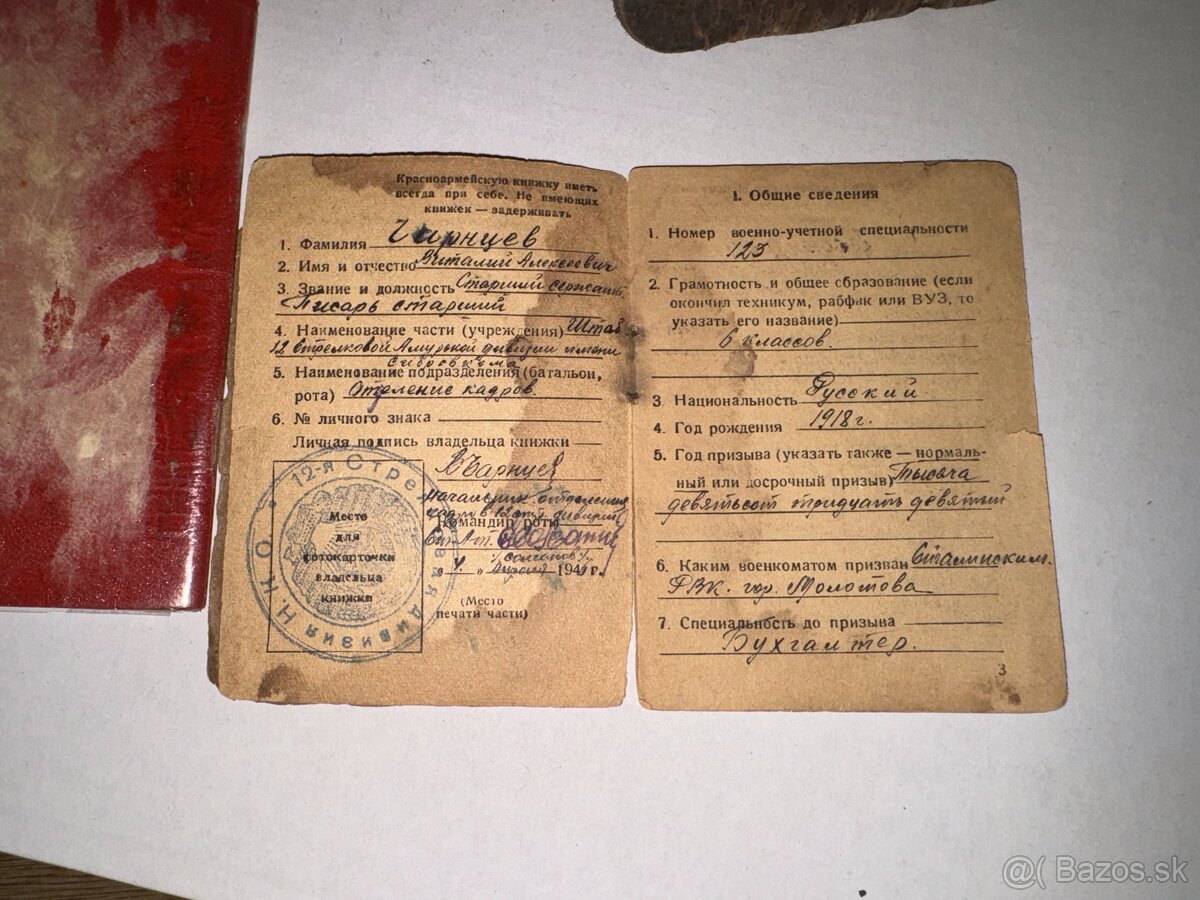 Красноармейскую книжку иметь
всегда при себе. Не имеющих
книжек — задерживать
1. Фамилия Чарнцев
2. Имя и отчество Виталий Алексеевич
3. Звание и должность Старший сержант
Писарь старший
4. Наименование части (учреждения) Штаб
12 Стрелковой Амурской дивизии имени
Сибревкома
5. Наименование подразделения (батальон,
рота) Отделение кадров.
6. № личного знака
Личная подпись владельца книжки
Чарнцев
Начальник отделения
кадров 12 стр дивизии
Командир роты
Ст. л-т
"4" апреля 194 г.
(Место
печати части)
Место
для
фотокарточки
владельца
книжки
12-я Стрел дивизия Н.К.О.
1. Общие сведения
1. Номер военно-учетной специальности
123
2. Грамотность и общее образование (если
окончил техникум, рабфак или ВУЗ, то
указать его название)
6 классов.
3 Национальность Русский
4. Год рождения 1918 г.
5. Год призыва (указать также — нормаль-
ный или досрочный призыв) Тысяча
девятьсот тридцать девятый
6. Каким военкоматом призван Сталинским
РВК. гор. Молотова
7. Специальность до призыва
Бухгалтер.
3
@( Bazos.sk